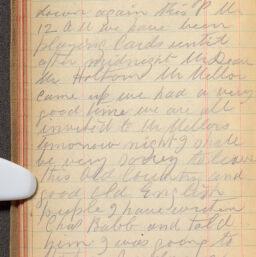 down again this P.M.
12 A.M we have been
playing Cards until
after midnight Mr Dean
Mr Holtom Mr Mellor
came up we had a very
good time we are all
invited to Mr Mellors
tomorrow night I shall
be very sorry to leave
this old Country and
good old English
people I have written
Chas Babb and told
him I was going to